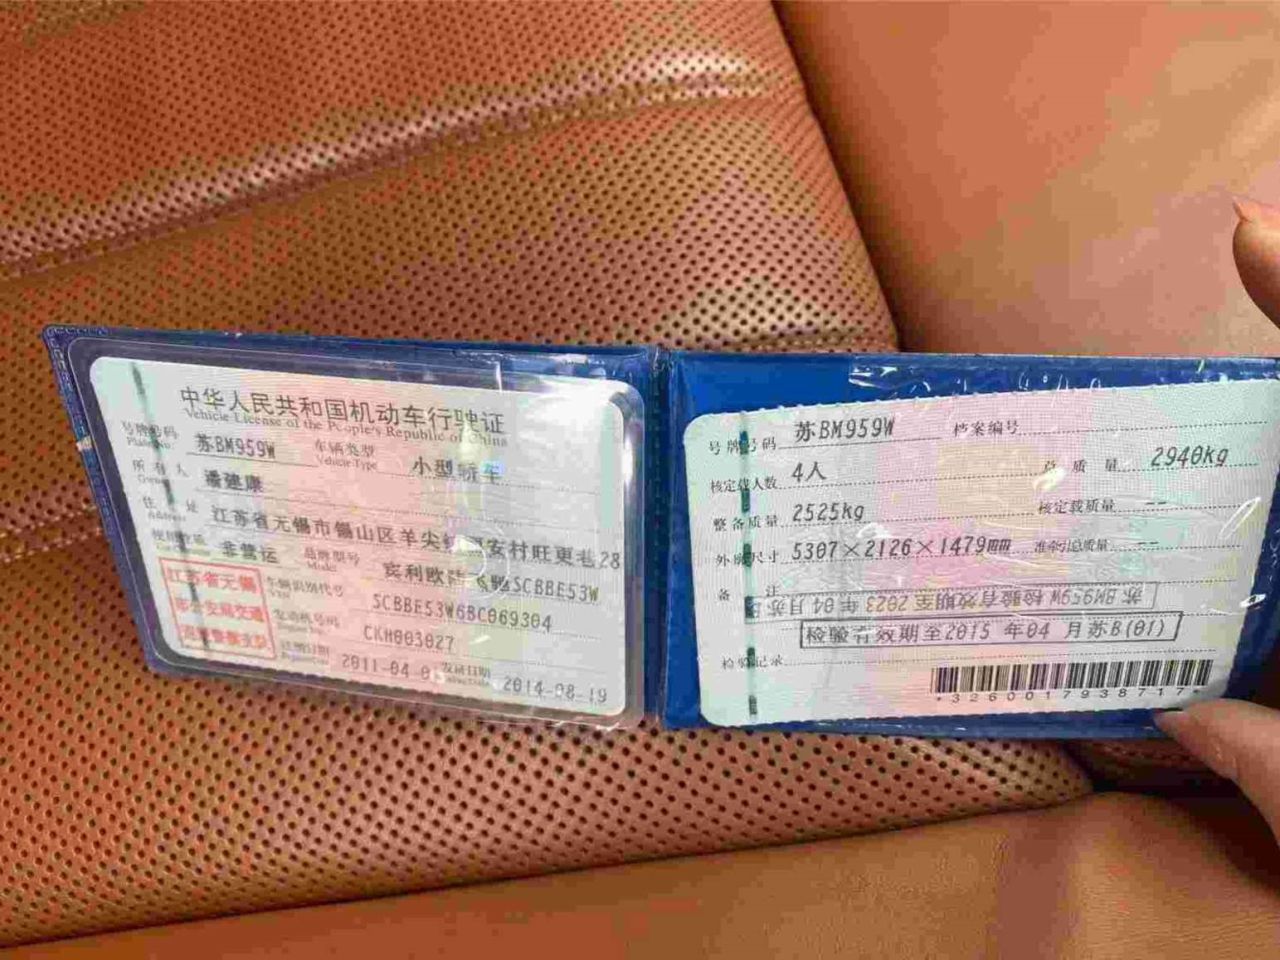 中华人民共和国机动车行驶证
Vehicle License of the People's Republic of China
号牌号码 苏BM959W 车辆类型 小型轿车
Plate No. Vehicle Type
所有人 潘建康
Owner
住址 江苏省无锡市锡山区羊尖 安村旺更巷28
Address
使用性质 非营运 品牌型号 宾利欧陆飞驰SCBBE53W
Use Character Model
江苏省无锡
市公安局交通
巡逻警察支队
车辆识别代号 SCBBE53W6BC069304
VIN
发动机号码 CKH003027
注册日期 2011-04-0 发证日期 2014-08-19
号牌号码 苏BM959W 档案编号
核定载人数 4人 总质量 2940kg
整备质量 2525kg 核定载质量 --
外廓尺寸 5307×2126×1479mm 准牵引总质量 --
备注
苏BM959W 检验有效期至2023 年04 月苏B
检验有效期至2015 年04 月苏B(01)
检验记录
*3260017938717*